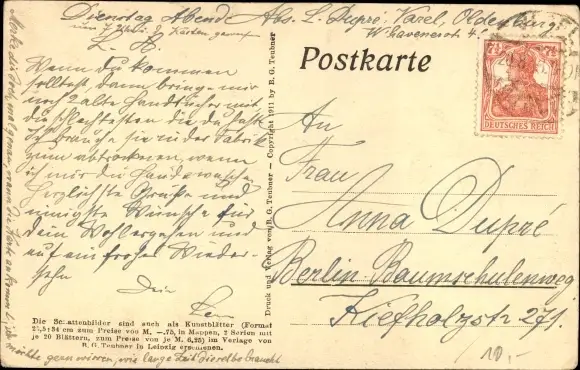 Dienstag Abend Abs. L. Dupré, Varel, Oldenburg
W'havenerstr. 4
Postkarte
7½ 7½
DEUTSCHES REICH
L. A.
Wenn du kommen
solltest, dann bringe mir
noch 2 alte Handtücher mit
die schlechtesten die du hast
Ich brauche sie in der Fabrik
zum abtrocknen, wenn
ich mir die Hände wasche.
Herzlichste Grüße und
innigste Wünsche für
dein Wohlergehen und
auf ein frohes Wieder-
sehn
Dein
An
Frau
Anna Dupré
Berlin-Baumschulenweg
Kiefholzstr 271.
Druck und Verlag von B. G. Teubner — Copyright 1911 by B. G. Teubner
Die Schattenbilder sind auch als Kunstblätter (Format
25,5:34 cm zum Preise von M. —.75, in Mappen, 2 Serien mit
je 20 Blättern, zum Preise von je M. 6,25) im Verlage von
B. G. Teubner in Leipzig erschienen.
möchte gern wissen, wie lange Zeit dieselbe braucht
10,-